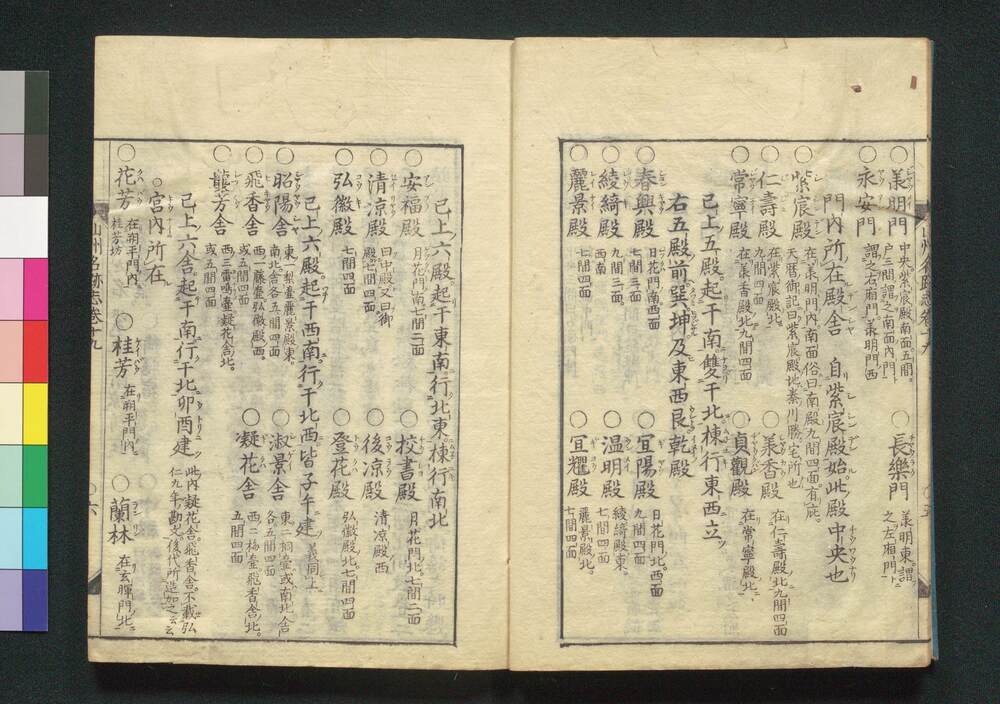 ○義明門 中央紫宸殿南面五間。
戸三間謂之南面内門
○長樂門 義明東謂
之左廂門
○永安門 義明門西
謂之右廂門
門内所在殿舎 自紫宸殿始此殿中央也
○紫宸殿 在義明門内南面俗曰南殿九間四面有庇。
天暦御記曰紫宸殿地秦川勝宅所也
○仁壽殿 在紫宸殿北
九間四面
○兼香殿 在仁壽殿北九間四面
○常寧殿 在義香殿北九間四面
○貞觀殿 在常寧殿北
已上五殿起于南雙于北棟行東西立
右五殿前巽坤及東西艮乾殿
○春興殿 日花門南西面
七間三面
○宜陽殿 日花門北西面
九間四面
○綾綺殿 仁壽殿東
西南
○温明殿 綾綺殿東。
七間四面
○麗景殿 七間四面
○宜耀殿 麗景殿北。
七間四面
山州名跡志卷十九 ○五
已上六殿起于東南行北東棟行南北
○安福殿 月花門南七間二面
○挍書殿 月花門北七間二面
○清凉殿 曰中殿又曰御
殿七間四面
○後凉殿 清凉殿西
○弘徽殿 七間四面
○登花殿 弘徽殿北七間四面
已上六殿。起于西南。行于北西皆子午建 義同上
○昭陽舎 東一梨壷麗景殿東
南北舎各五間四面
○淑景舎 東二桐壷或南北舎
各五間四面
○飛香舎 西一藤壷弘徽殿西。
或五間四面
○凝花舎 西二梅壷飛香舎北。
五間四面
○襲芳舎 西三雷鳴壷凝花舎北。
或五間四面
已上六舎起于南行于北卯酉建 此内凝花舎。飛香舎。不載弘
仁九年勘文後代所造加之云云
○宮内所在
○花芳 在朔平門内
桂芳坊
○桂芳 在朔平門内
○蘭林 在玄暉門北
山州名跡志卷十九 ○六